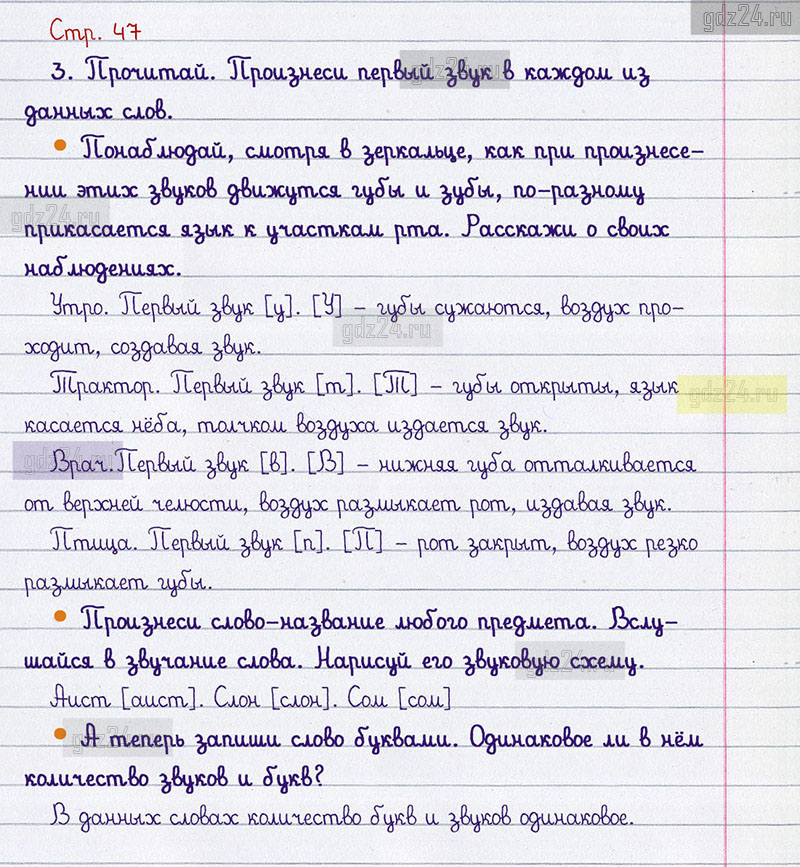 gdz24.ru
Стр. 47
3. Прочитай. Произнеси первый звук в каждом из
данных слов.
• Понаблюдай, смотря в зеркальце, как при произнесе-
нии этих звуков движутся губы и зубы, по-разному
прикасается язык к участкам рта. Расскажи о своих
наблюдениях.
Утро. Первый звук [у]. [У] – губы сужаются, воздух про-
ходит, создавая звук.
Трактор. Первый звук [т]. [Т] – губы открыты, язык
касается нёба, толчком воздуха издается звук.
Врач. Первый звук [в]. [В] – нижняя губа отталкивается
от верхней челюсти, воздух размыкает рот, издавая звук.
Птица. Первый звук [п]. [П] – рот закрыт, воздух резко
размыкает губы.
• Произнеси слово-название любого предмета. Вслу-
шайся в звучание слова. Нарисуй его звуковую схему.
Аист [аист]. Слон [слон]. Сом [сом]
• А теперь запиши слово буквами. Одинаковое ли в нём
количество звуков и букв?
В данных словах количество букв и звуков одинаковое.